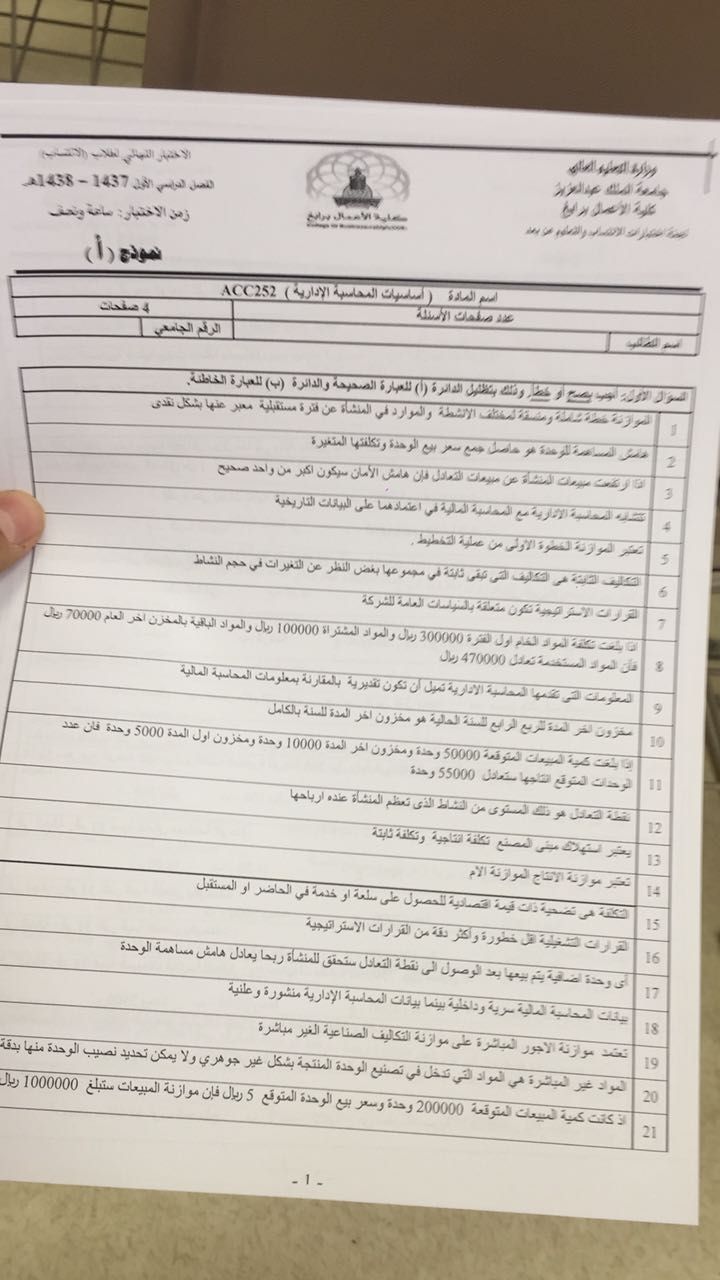 وزارة التعليم العالي
جامعة الملك عبدالعزيز
كلية الأعمال برابغ
لجنة اختبارات الانتساب والتعليم عن بعد
كلية الأعمال برابغ
الاختبار النهائي لطلاب (الانتساب)
الفصل الدراسي الأول 1437 – 1438هـ
زمن الاختبار: ساعة ونصف
نموذج (أ)
اسم المادة ( أساسيات المحاسبة الإدارية ) ACC252
عدد صفحات الأسئلة 4 صفحات
اسم الطالب الرقم الجامعي
السؤال الأول: أجب بصح أو خطأ، وذلك بتظليل الدائرة (أ) للعبارة الصحيحة والدائرة (ب) للعبارة الخاطئة.
1 الموازنة خطة شاملة ومنسقة لمختلف الانشطة والموارد في المنشأة عن فترة مستقبلية معبر عنها بشكل نقدى
2 هامش المساهمة للوحدة هو حاصل جمع سعر بيع الوحدة وتكلفتها المتغيرة
3 اذا ارتفعت مبيعات المنشأة عن مبيعات التعادل فإن هامش الأمان سيكون اكبر من واحد صحيح
4 تتشابه المحاسبة الادارية مع المحاسبة المالية في اعتمادهما على البيانات التاريخية
5 تعتبر الموازنة الخطوة الاولى من عملية التخطيط .
6 التكاليف الثابتة هى التكاليف التى تبقى ثابتة في مجموعها بغض النظر عن التغيرات في حجم النشاط
7 القرارات الاستراتيجية تكون متعلقة بالسياسات العامة للشركة
8 اذا بلغت تكلفة المواد الخام اول الفترة 300000 ريال والمواد المشتراة 100000 ريال والمواد الباقية بالمخزن اخر العام 70000 ريال
فأن المواد المستخدمة تعادل 470000 ريال
9 المعلومات التى تقدمها المحاسبة الادارية تميل أن تكون تقديرية بالمقارنة بمعلومات المحاسبة المالية
10 مخزون اخر المدة للربع الرابع للسنة الحالية هو مخزون اخر المدة للسنة بالكامل
11 إذا بلغت كمية المبيعات المتوقعة 50000 وحدة ومخزون اخر المدة 10000 وحدة ومخزون اول المدة 5000 وحدة فان عدد
الوحدات المتوقع انتاجها ستعادل 55000 وحدة
12 نقطة التعادل هو ذلك المستوى من النشاط الذى تعظم المنشأة عنده ارباحها
13 يعتبر استهلاك مبنى المصنع تكلفة انتاجية وتكلفة ثابتة
14 تعتبر موازنة الانتاج الموازنة الام
15 التكلفة هى تضحية ذات قيمة اقتصادية للحصول على سلعة او خدمة في الحاضر او المستقبل
16 القرارات التشغيلية اقل خطورة وأكثر دقة من القرارات الاستراتيجية
17 أى وحدة اضافية يتم بيعها بعد الوصول الى نقطة التعادل ستحقق للمنشأة ربحا يعادل هامش مساهمة الوحدة
18 بيانات المحاسبة المالية سرية وداخلية بينما بيانات المحاسبة الإدارية منشورة وعلنية
19 تعتمد موازنة الاجور المباشرة على موازنة التكاليف الصناعية الغير مباشرة
20 المواد غير المباشرة هي المواد التي تدخل في تصنيع الوحدة المنتجة بشكل غير جوهري ولا يمكن تحديد نصيب الوحدة منها بدقة
21 اذ كانت كمية المبيعات المتوقعة 200000 وحدة وسعر بيع الوحدة المتوقع 5 ريال فإن موازنة المبيعات ستبلغ 1000000 ريال
- 1 -